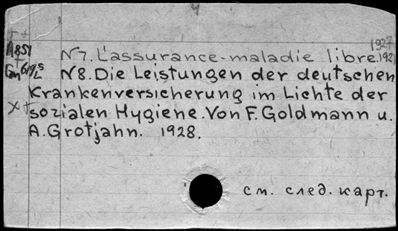 1927
A851 N7. L'assurance-maladie libre. 192
N8. Die Leistungen der deutschen
Krankenversicherung im Lichte der
sozialen Hygiene. Von F. Goldmann u.
A. Grotjahn. 1928.
см. след. карт.